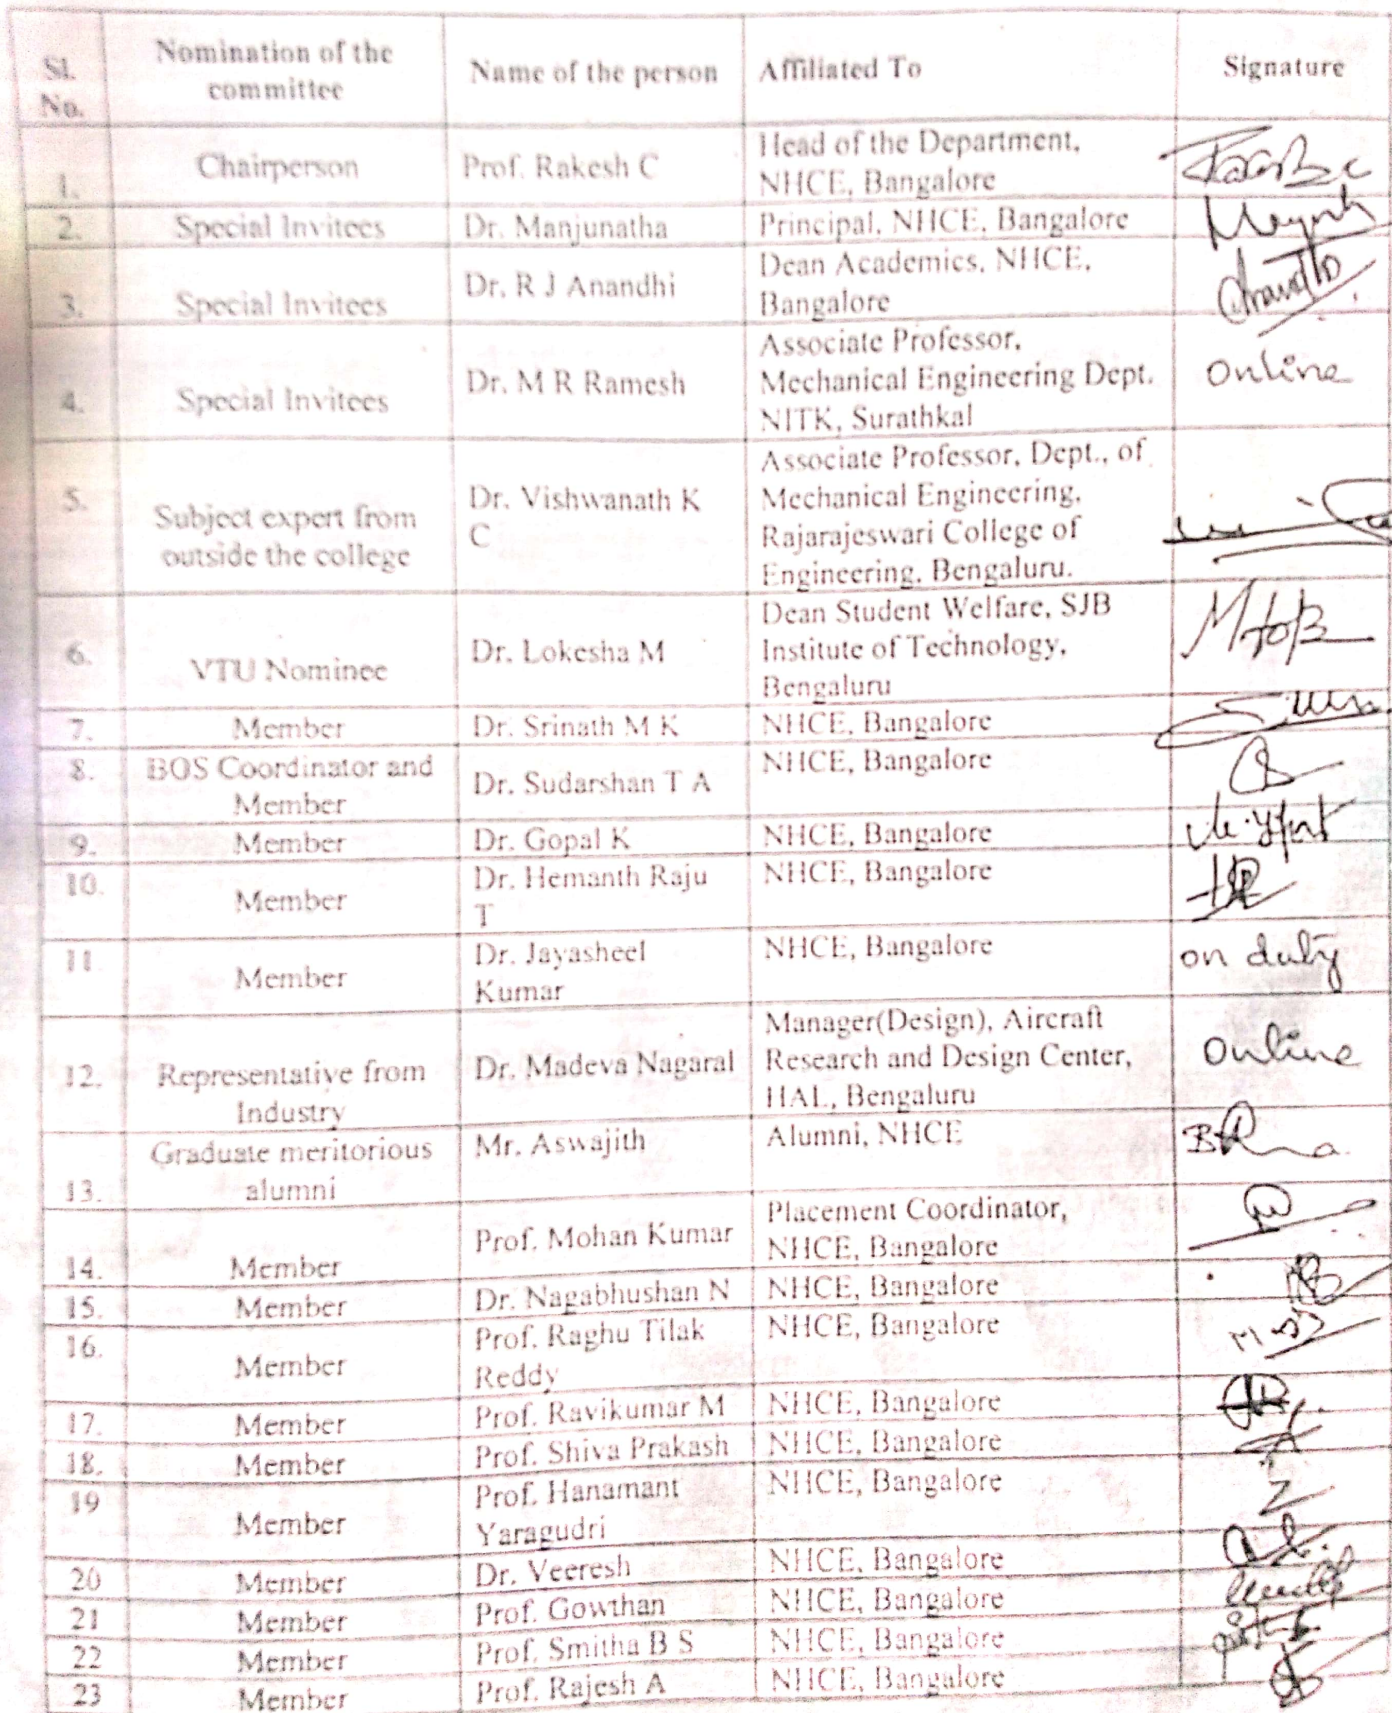 Sl. No. Nomination of the committee Name of the person Affiliated To Signature
1. Chairperson Prof. Rakesh C Head of the Department, NHCE, Bangalore
2. Special Invitees Dr. Manjunatha Principal, NHCE, Bangalore
3. Special Invitees Dr. R J Anandhi Dean Academics, NHCE, Bangalore
4. Special Invitees Dr. M R Ramesh Associate Professor, Mechanical Engineering Dept. NITK, Surathkal Online
5. Subject expert from outside the college Dr. Vishwanath K C Associate Professor, Dept., of Mechanical Engineering, Rajarajeswari College of Engineering, Bengaluru.
6. VTU Nominee Dr. Lokesha M Dean Student Welfare, SJB Institute of Technology, Bengaluru
7. Member Dr. Srinath M K NHCE, Bangalore
8. BOS Coordinator and Member Dr. Sudarshan T A NHCE, Bangalore
9. Member Dr. Gopal K NHCE, Bangalore
10. Member Dr. Hemanth Raju T NHCE, Bangalore
11 Member Dr. Jayasheel Kumar NHCE, Bangalore on duty
12. Representative from Industry Dr. Madeva Nagaral Manager(Design), Aircraft Research and Design Center, HAL, Bengaluru Online
13. Graduate meritorious alumni Mr. Aswajith Alumni, NHCE
14. Member Prof. Mohan Kumar Placement Coordinator, NHCE, Bangalore
15. Member Dr. Nagabhushan N NHCE, Bangalore
16. Member Prof. Raghu Tilak Reddy NHCE, Bangalore
17. Member Prof. Ravikumar M NHCE, Bangalore
18. Member Prof. Shiva Prakash NHCE, Bangalore
19 Member Prof. Hanamant Yaragudri NHCE, Bangalore
20 Member Dr. Veeresh NHCE, Bangalore
21 Member Prof. Gowthan NHCE, Bangalore
22 Member Prof. Smitha B S NHCE, Bangalore
23 Member Prof. Rajesh A NHCE, Bangalore